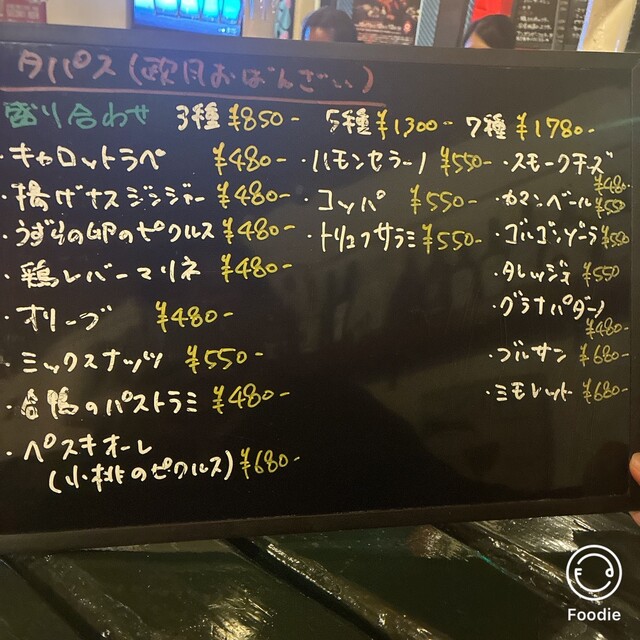 タパス(欧風おばんざい)
盛り合わせ 3種 ¥850- 5種 ¥1300- 7種 ¥1780-
・キャロットラペ ¥480-
・揚げナスジンジャー ¥480-
・うずらの卵のピクルス ¥480-
・鶏レバーマリネ ¥480-
・オリーブ ¥480-
・ミックスナッツ ¥550-
・合鴨のパストラミ ¥480-
・ペスキオーレ
(小桃のピクルス) ¥680-
・ハモンセラーノ ¥550-
・コッパ ¥550-
・トリュフサラミ ¥550-
・スモークチーズ
¥480-
・カマンベール ¥550
・ゴルゴンゾーラ ¥550
・タレッジョ ¥550
・グラナパダーノ
¥480-
・ブルサン ¥680-
・ミモレット ¥680-
Foodie